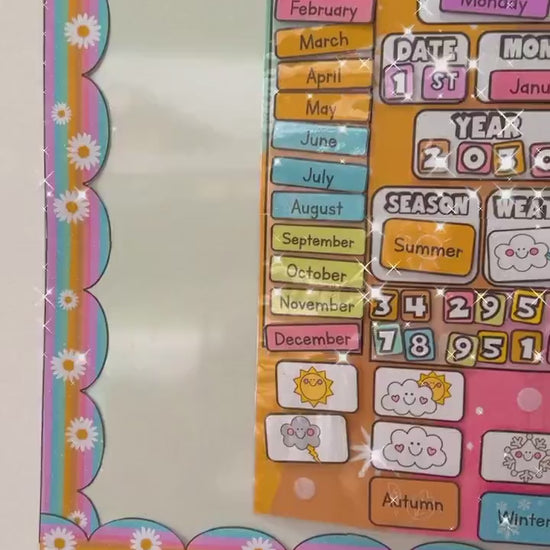 February
Monday
March
DATE
MON
April
1 ST
Janu
May
YEAR
June
2 0 3 0
July
SEASON
WEAT
August
Summer
September
October
November
3 4 2 9 5
December
7 8 9 5 1
Autumn
Winter